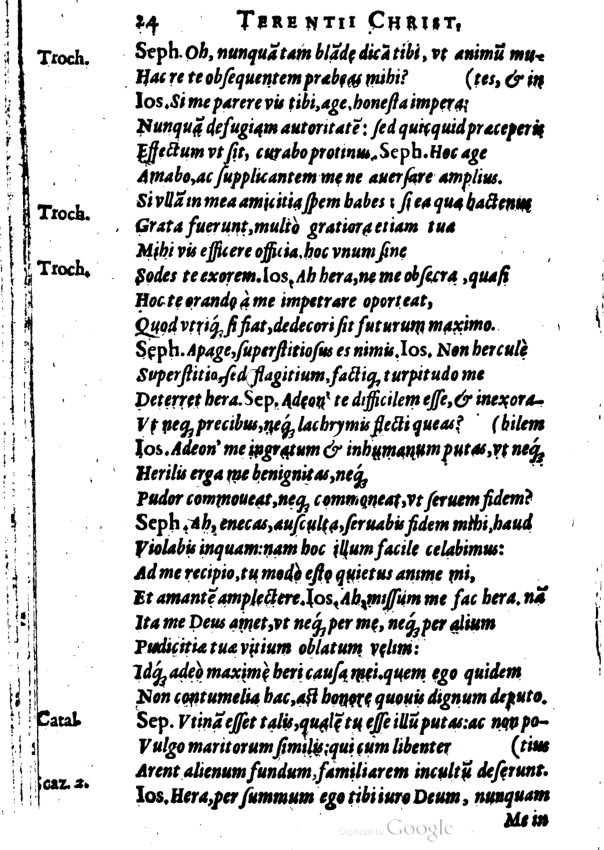 24 TERENTII CHRIST,
Troch. Seph. Oh, nunquā tam blādę dicā tibi, vt animū mu-
Hac re te obſequentem præbeas mihi? (tes, & in
Ios. Si me parere vis tibi, age, honeſta impera;
Nunquā defugiam autoritatē: ſed quicquid præceperis
Effectum vt ſit, curabo protinus. Seph. Hoc age
Amabo, ac ſupplicantem me ne auerſare amplius.
Si vllā in mea amicitia ſpem habes: ſi ea quæ hactenus
Troch. Grata fuerunt, multò gratiora etiam tua
Mihi vis efficere officia. hoc vnum ſine
Troch. Sodes te exorem. Ios. Ah hera, ne me obſecra, quaſi
Hoc te orando à me impetrare oporteat,
Quod vtriq́; ſi fiat, dedecori ſit futurum maximo.
Seph. Apage, ſuperſtitioſus es nimis. Ios. Non herculè
Superſtitio, ſed flagitium, factiq; turpitudo me
Deterret hera. Sep. Adeon' te difficilem eſſe, & inexora-
Vt neq; precibus, neq́; lachrymis flecti queas? (bilem
Ios. Adeon' me ingratum & inhumanum putas, vt neq́;
Herilis erga me benignitas, neq́;
Pudor commoueat, neq; commoneat, vt ſeruem fidem?
Seph. Ah, enecas, auſculta, ſeruabis fidem mihi, haud
Violabis inquam: nam hoc illum facile celabimus:
Ad me recipio, tu modò eſto quietus anime mi,
Et amantē amplectere. Ios. Ah, miſſum me fac hera. nā
Ita me Deus amet, vt neq́; per me, neq́; per alium
Pudicitiæ tuæ vitium oblatum velim:
Idq́; adeò maximè heri cauſa mei. quem ego quidem
Non contumelia hac, aſt honore quouis dignum deputo.
Catal. Sep. Vtinā eſſet talis, qualē tu eſſe illū putas: ac non po-
Vulgo maritorum ſimilis: qui cum libenter (tius
Arent alienum fundum, familiarem incultū deſerunt.
ſcaz. 2. Ios. Hera, per ſummum ego tibi iuro Deum, nunquam
Me in
Digitized by Google